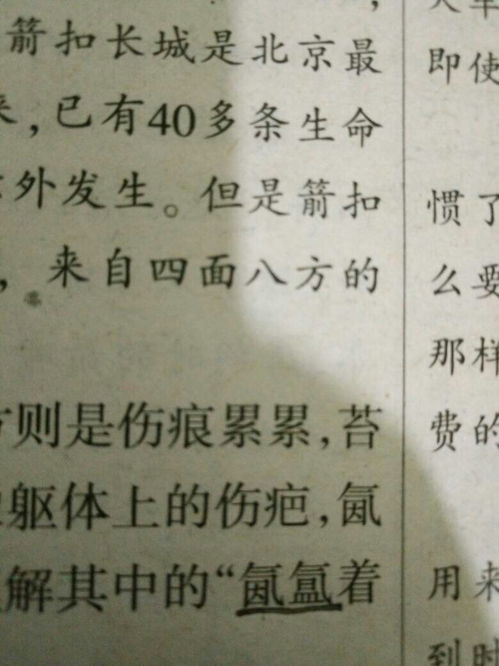 箭扣长城是北京最
来,已有40多条生命
外发生。但是箭扣
,来自四面八方的
则是伤痕累累,苔
躯体上的伤疤,氤
解其中的“氤氲着
即使
惯了
么要
那样
费的
用来
到时